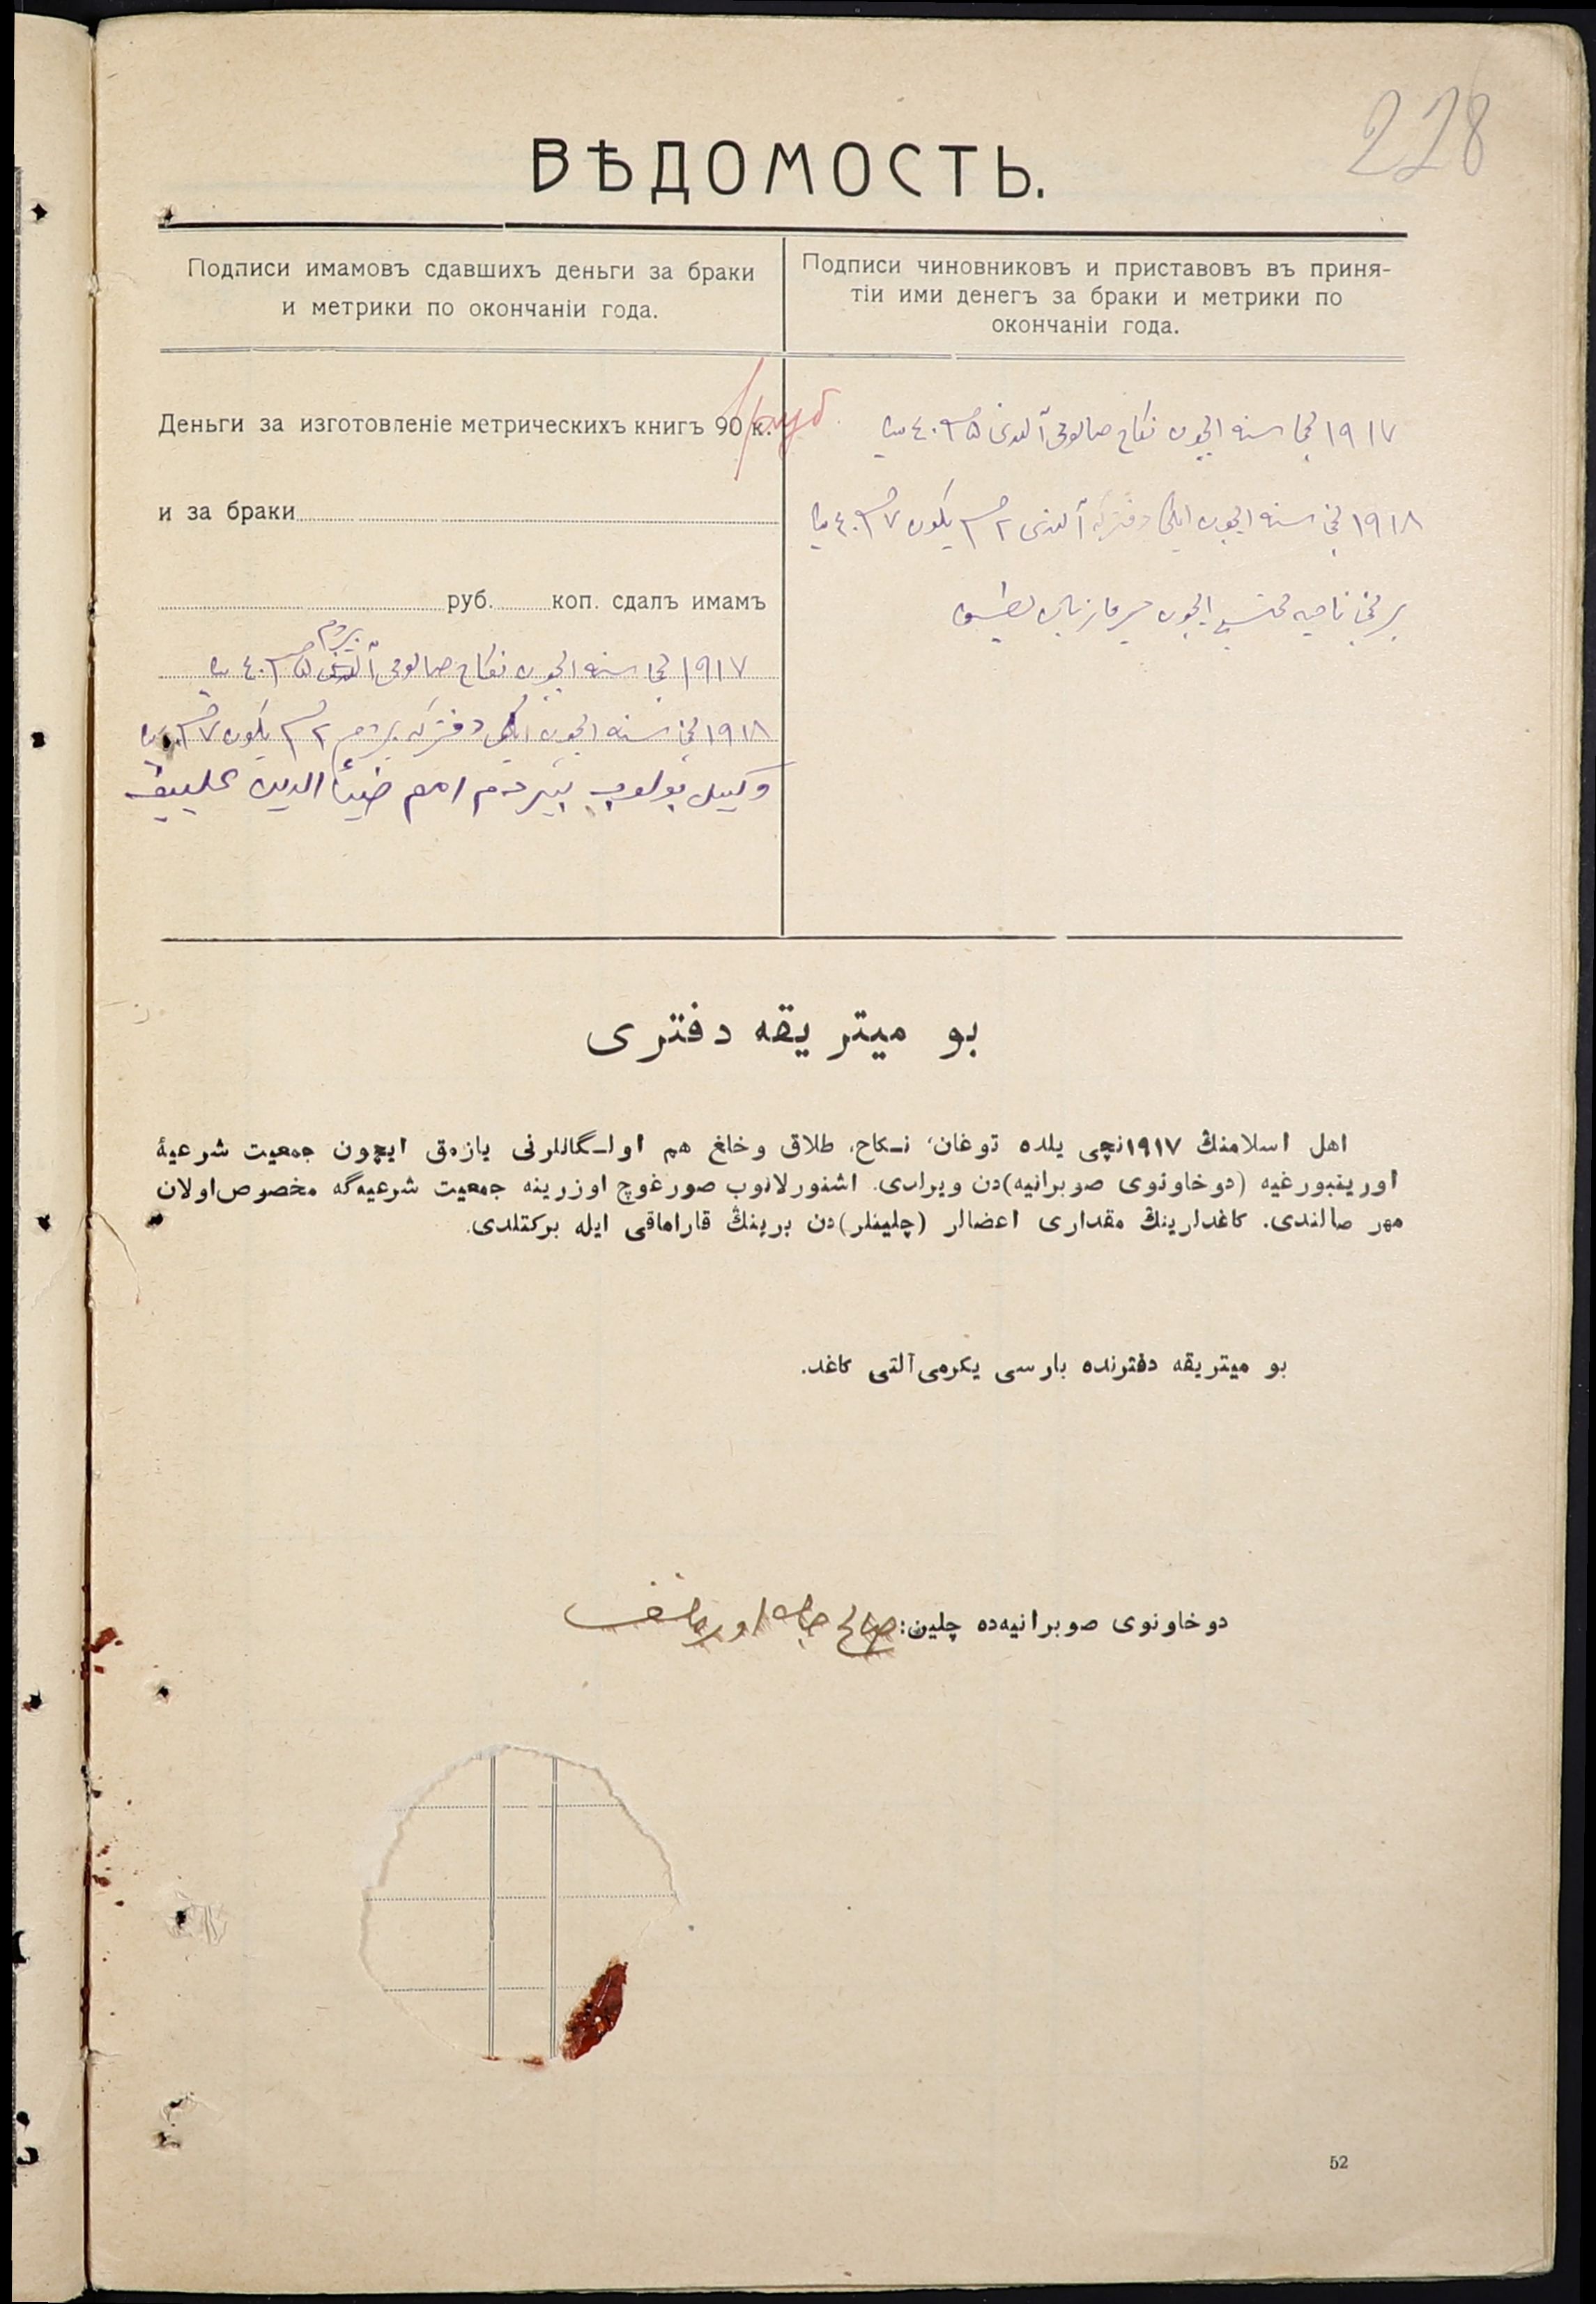 228
ВѢДОМОСТЬ.
Подписи имамовъ сдавшихъ деньги за браки
и метрики по окончаніи года.
Подписи чиновниковъ и приставовъ въ приня-
тіи ими денегъ за браки и метрики по
окончаніи года.
Деньги за изготовленіе метрическихъ книгъ 90 к.
руб.
и за браки
руб. коп. сдалъ имамъ
بيردم
١٩١٧ نچی سنه ایچون نکاح صالومی آلندی ٥ ٤٠
١٩١٨ نچی سنه ایچون ایکی دفترکه بیردم ٢ یکون ٧
وکیل بولوب بیردم امام ضیاءالدین
١٩١٧ نچی سنه ایچون نکاح صالومی آلندی ٥ ٤٠
١٩١٨ نچی سنه ایچون ایکی دفترکه آلندی ٢ یکون ٧ ٤٠
برنچی ناحیه ایچون
بو میتریقه دفتری
اهل اسلامنڭ ١٩١٧نچی یلده توغان، نـکاح، طلاق وخلغ هم اولـگانلرنی یازمق ایچون جمعیت شرعیهٔ
اورینبورغیه (دوخاونوی صوبرانیه)دن ویرلدی. اشنورلانوب صورغوچ اوزرینه جمعیت شرعیه‌گه مخصوص اولان
مهر صالندی. کاغدلرینڭ مقداری اعضالر (چلینلر)دن برینڭ قاراماقی ایله برکتلدی.
بو میتریقه دفترنده بارسی یکرمی آلتی کاغد.
دوخاونوی صوبرانیه‌ده چلین: صالح جان اورمانف
52